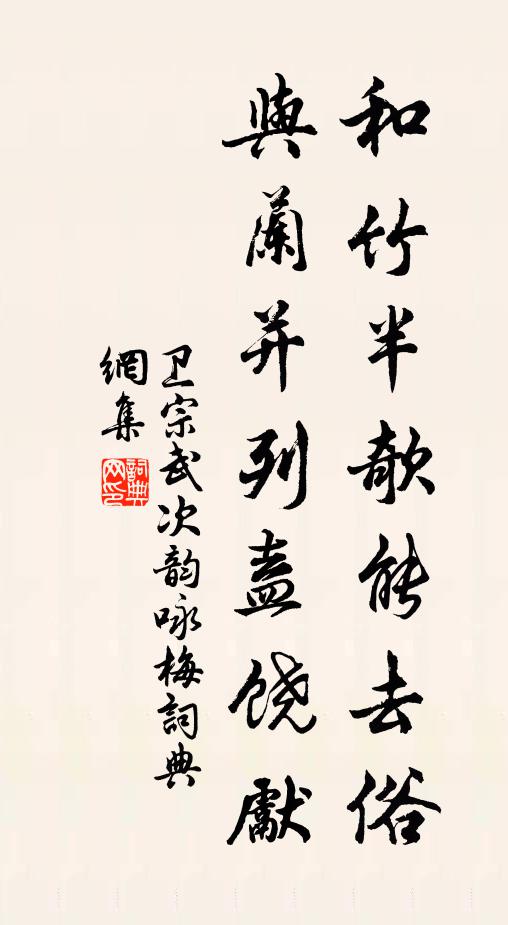 和竹半欹能去俗
與蘭并列盍饶獻
卫宗武次韵咏梅詞典
網集
詞典網印